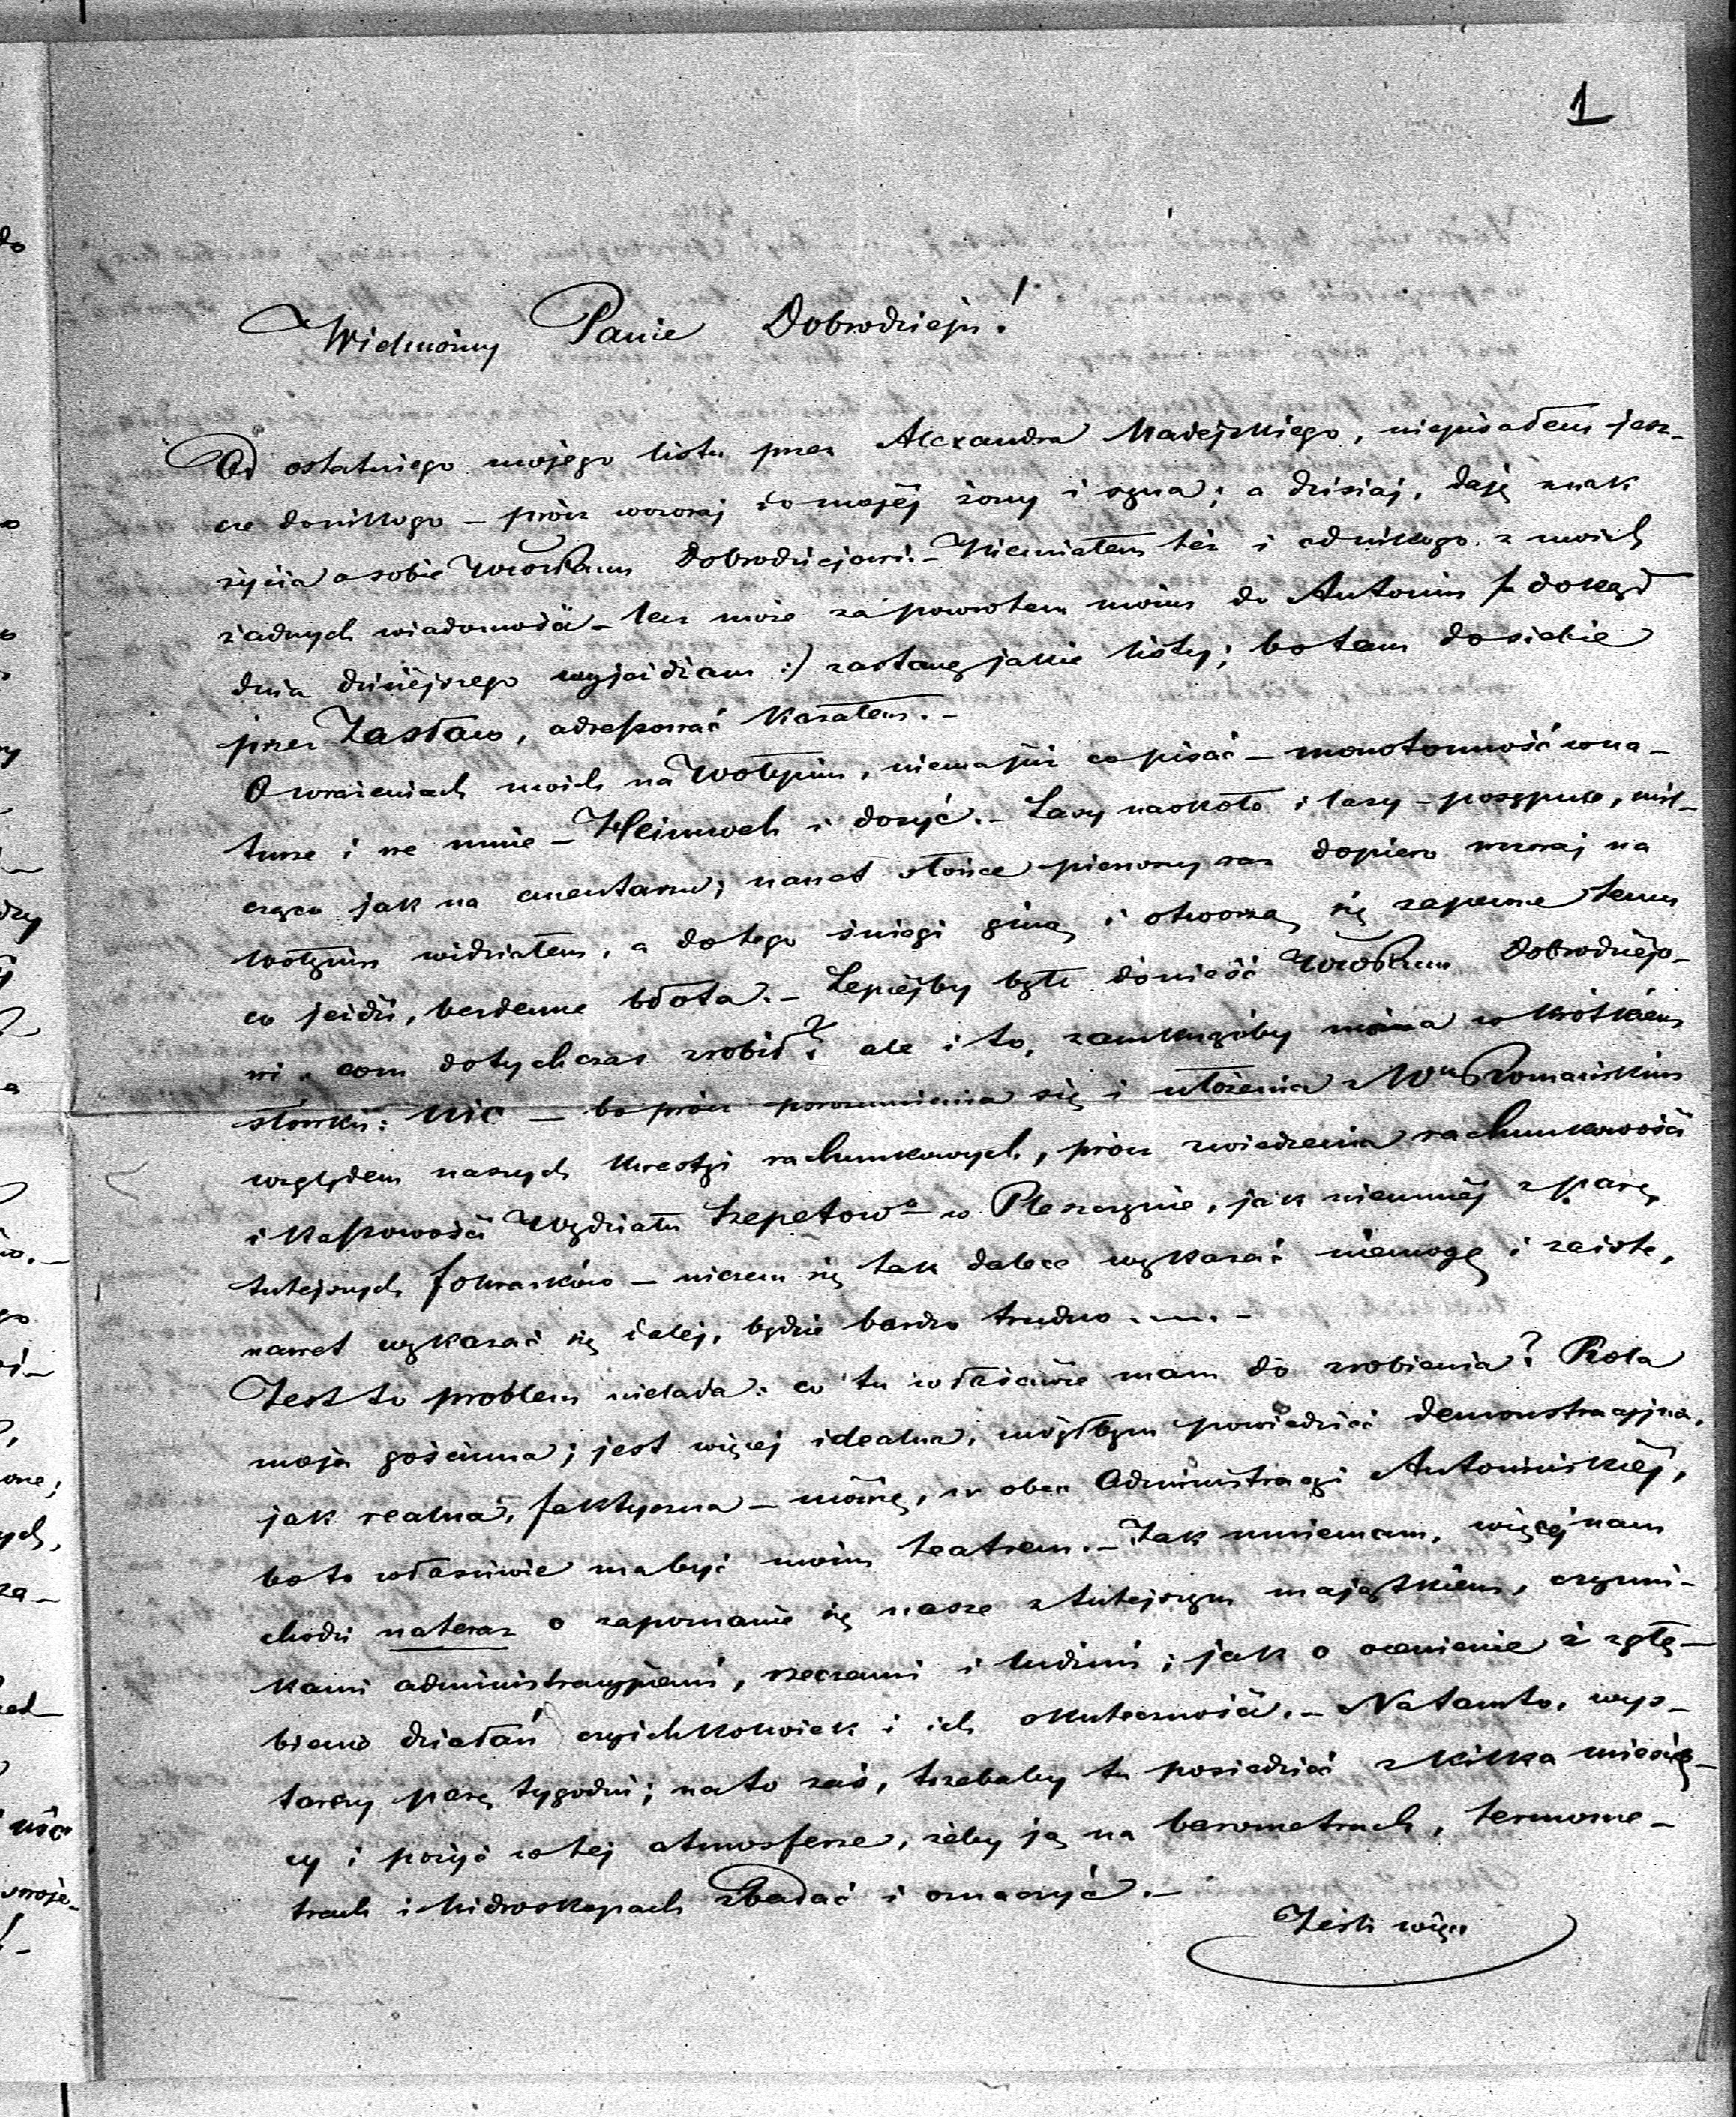 1
Wielmożny Panie Dobrodzieju!
Od ostatniego mojego listu przez Alexandra Maiejskiego, niepisałem jesz-
cze donikogo – prócz wczoraj do mojéj żony i syna; a dzisiaj, daję znak
życia o sobie Dobrodziejowi. – Niemiałem też i odnikogo z moich
żadnych wiadomości – lecz może za powrotem moim do Antonin /: dokąd
dnia dzisiéjszego wyjeżdżam :/ zastanę jakie listy; bo tam do siebie
przez Zasław, adressować kazałem. –
O wrażeniach moich na Wołyniu, niema już co pisać – monotonność w na-
turze i we mnie – Heimweh i dosyć. – Lasy naokoło i lasy – posępne, mil-
cząco jak na cmentarzu; nawet słońce pierwszy raz dopiero wczoraj na
Wołyniu widziałem, a do tego śniegi giną i otworzą się zapewne temu
co jeździ, bezdenne błota. – Lepiéjby było donieść Dobrodziejo-
wi, com dotychczas zrobił? ale i to, zamknąćby można w krótkiem
słówku: nic – bo prócz porozumienia się i ułożenia z Romańskim
względem naszych kwestyi rachunkowych, prócz zwiedzenia rachunkowości
i kassowości Wydziału Szepetows w Pleszczynie, jak niemniéj z parę
tutejszych folwarków – niczem się tak dalece wykazać niemogę i zaiste,
nawet wykazać się daléj, będzie bardzo trudno . . . . –
Jest to problem nielada: co tu właściwie mam do zrobienia? Rola
moja gościnna; jest więcéj idealna, mógłbym powiedzieć demonstracyjna,
jak realna, faktyczna – mówię, w obec Administracyi Antonińskiéj,
bo to właściwie ma być moim teatrem. – Jak mniemam, więcéj nam
chodzi na teraz o zapoznanie się nasze z tutejszym majątkiem, czynni-
kami administracyjnemi, rzeczami i ludźmi; jak o ocenienie i zgłę-
bienie działań czyichkolwiek i ich skuteczności. – Na tamto, wys-
tarczy parę tygodni; na to zaś, trzebaby tu posiedzieć z kilka miesię-
cy i pożyć w téj atmosferze, żeby ją na barometrach, termome-
trach i hidroskopach zbadać i oznaczyć. –
Jeśli więc